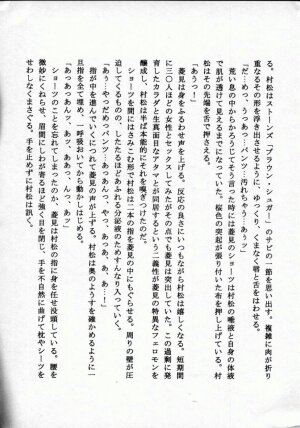 る。村松はストーンズ「ブラウン・シュガー」のサビの一節を思い出す。複雑に肉が折り
重なるその形を浮き出させるように、ゆっくりくまなく唇と舌をはわせる。
「だ…めっ、うっあっ…パンツ…汚れちゃう…あうっ」
荒い息の中からかろうじてそう言った時には菱見のショーツは村松の唾液と自身の体液
で肌が透けて見えるまでになっていた。桜色の突起が張り付いた布を押し上げている。村
松はその先端を舌で押さえる。
「あうっ！」
菱見は身をよがらせ声を上げる。反応の良さにいちいちながら村松は嬉しくなる。短期間
に三〇人ほどの女性とセックスしてみたがその点でも菱見は突出していた。この過剰に発
育したカラダと生真面目なアタマとが同居するという二義性が菱見の特異なフェロモンを
醸成し、村松は半ば本能的にそれを嗅ぎつけたのだ。
ショーツを間にはさみこむ形で村松は二本の指を菱見の中にもぐらせる。周りの壁が圧
迫してくるものの、したたるほどあふれる分泌液のためすんなり入っていく。
「あぅ…やっだめっパンツ…あっあっあっ…やっ、あっ、あ、あ…！」
指が中を進んでいくにつれて菱見の声が上がる。村松は奥のようすを確かめるように一
旦指を全て埋め、一呼吸おいてから動かしはじめる。
「あっあっあんッ、あッ、あああっ、んっ、あッ」
ショーツのことを忘れてしまったのか、菱見は村松の指に身を任せ没頭している。腰を
微妙にくねらせ、眉間にしわが寄るほど強く目を閉じ、手を不自然に曲げて枕やシーツを
せわしなくまさぐる。手を止めずに村松は訊く。